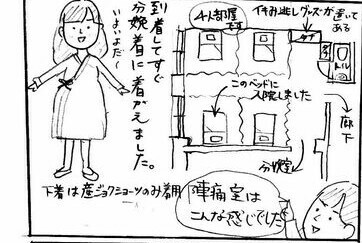 到着してすぐ
分娩着に着がえました。
いよいよだ〜
4人部屋
です
イキみ逃しグッズが置いて
ある
タナ
トイレ
このベッドに
入院しました
廊下
分娩室
下着は産ジョクショーツのみ着用
陣痛室は
こんな感じでした